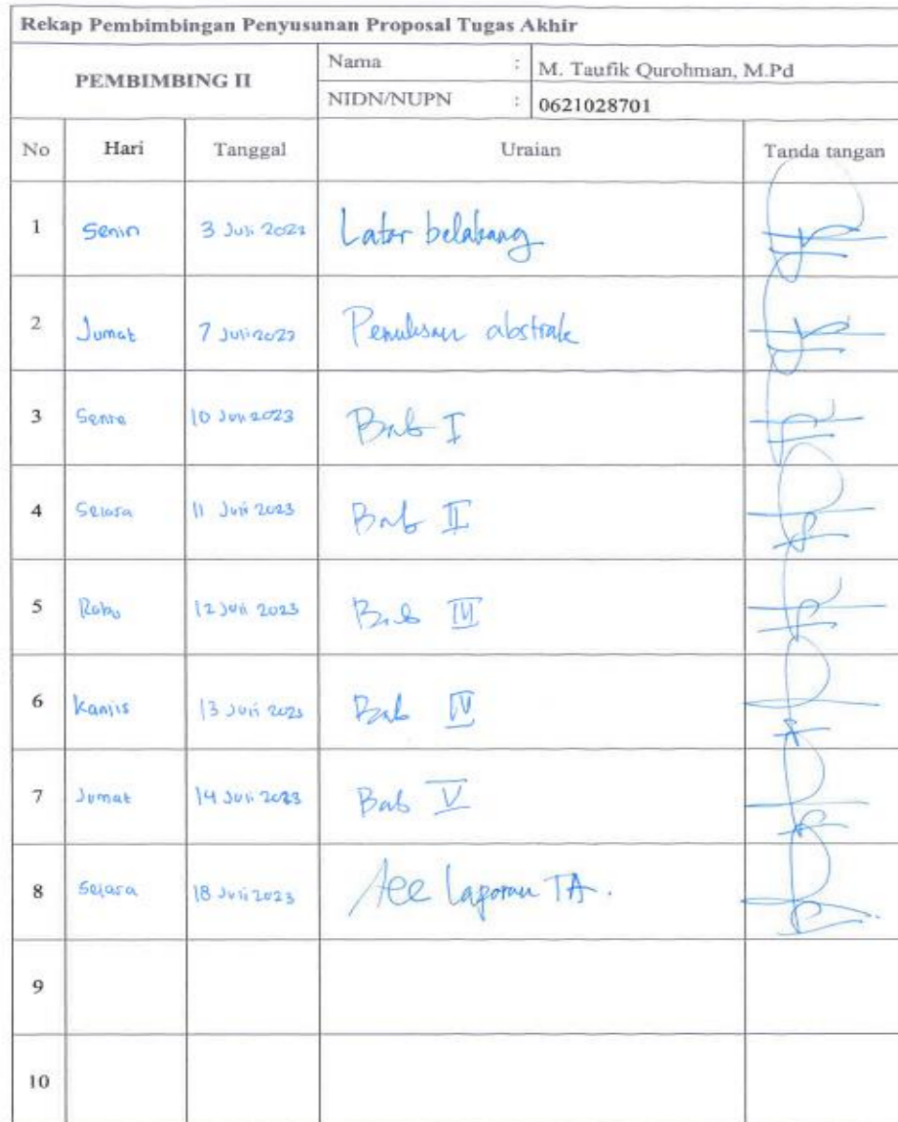 Rekap Pembimbingan Penyusunan Proposal Tugas Akhir
PEMBIMBING II
Nama : M. Taufik Qurohman, M.Pd
NIDN/NUPN : 0621028701
No Hari Tanggal Uraian Tanda tangan
1 Senin 3 Juli 2023 Latar belakang
2 Jumat 7 Juli 2023 Penulisan abstrak
3 Senin 10 Juli 2023 Bab I
4 Selasa 11 Juli 2023 Bab II
5 Rabu 12 Juli 2023 Bab III
6 Kamis 13 Juli 2023 Bab IV
7 Jumat 14 Juli 2023 Bab V
8 Selasa 18 Juli 2023 Acc laporan TA.
9
10